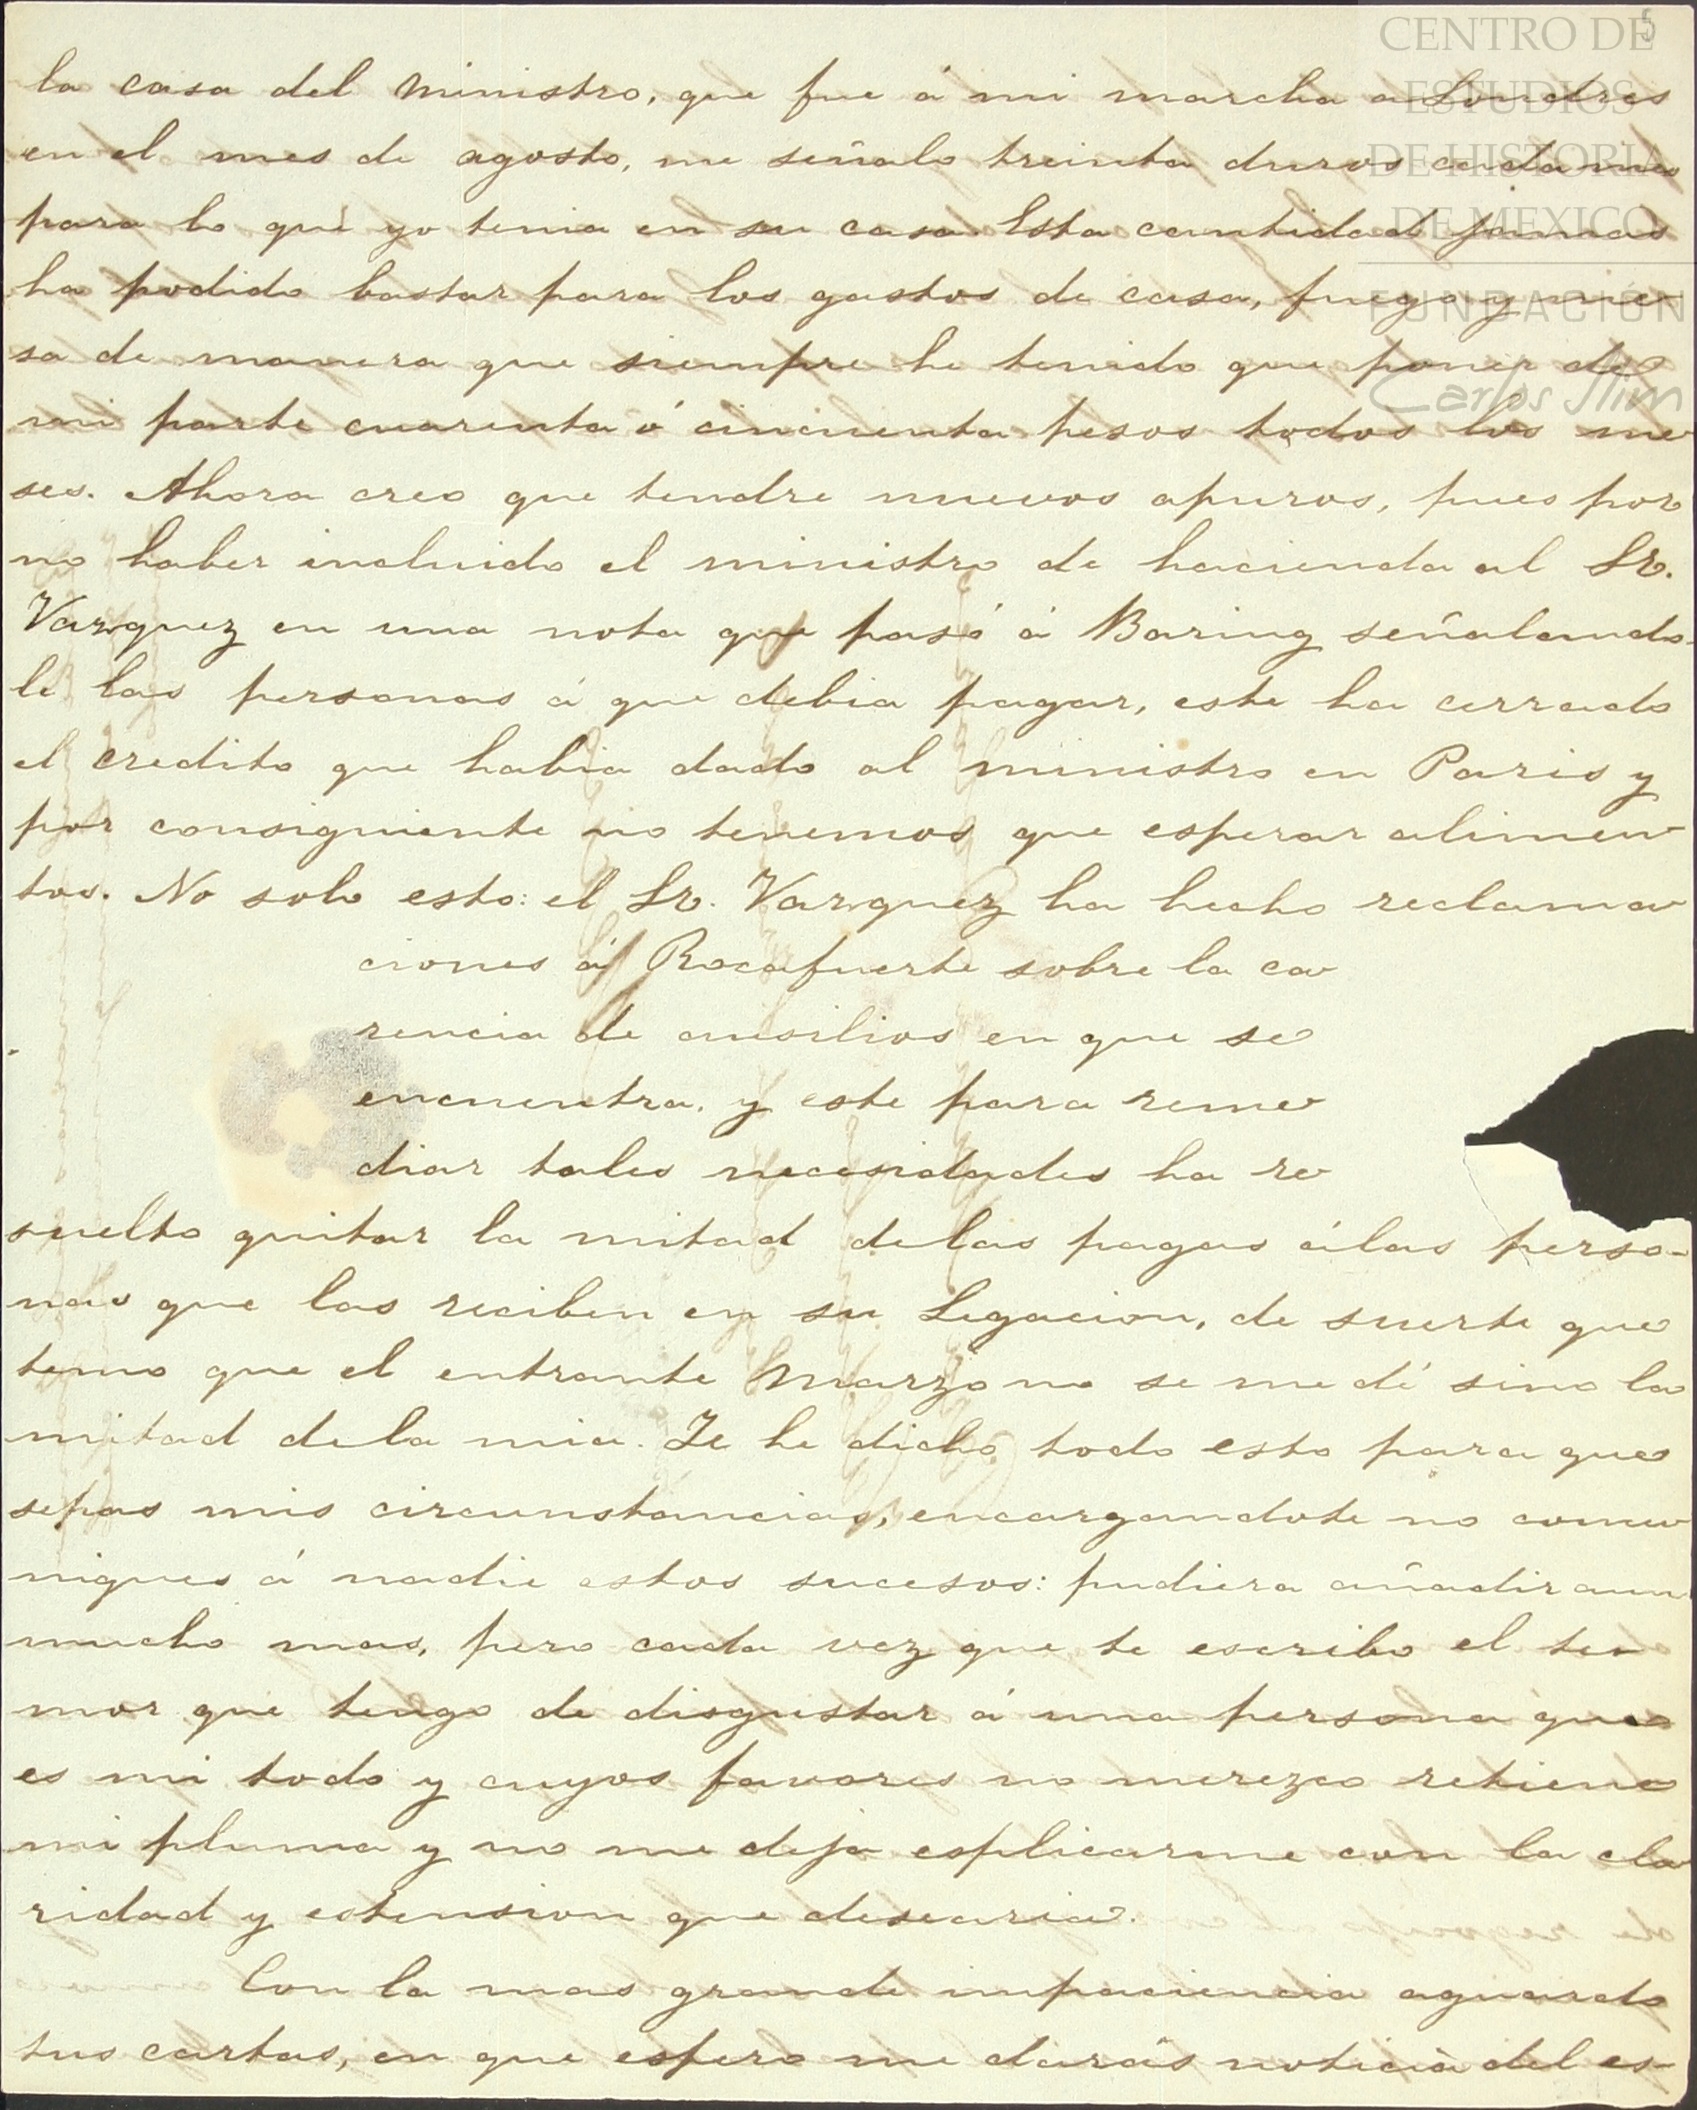 5
CENTRO DE
ESTUDIOS
DE HISTORIA
DE MEXICO
FUNDACIÓN
Carlos Slim
la casa del Ministro, que fue á mi marcha a Londres
en el mes de agosto, me señalo treinta duros cada mes
para lo que yo tenia en su casa. Esta cantidad jamas
ha podido bastar para los gastos de casa, fuego y me
sa de manera que siempre he tenido que poner de
mi parte cuarenta ó cincuenta pesos todos los me
ses. Ahora creo que tendre nuevos apuros, pues por
no haber incluido el ministro de hacienda al Sr.
Vazquez en una nota que pasó á Baring señalando-
le las personas á que debia pagar, este ha cerrado
el credito que habia dado al ministro en Paris y
por consiguiente no tenemos que esperar alimen
tos. No solo esto: el Sr. Vazquez ha hecho reclama
ciones á Rocafuerte sobre la ca
rencia de ausilios en que se
encuentra, y este para reme
diar tales necesidades ha re
suelto quitar la mitad delas pagas álas perso-
nas que las reciben en su Legacion, de suerte que
temo que el entrante Marzo no se me dé sino la
mitad dela mia. Te he dicho todo esto para que
sepas mis circunstancias, encargandote no comu
niques á nadie estos sucesos: pudiera añadir aun
mucho mas, pero cada vez que te escribo el te
mor que tengo de disgustar á una persona que
es mi todo y cuyos favores no merezco retiene
mi pluma y no me deja esplicarme con la cla
ridad y estension que desearia.
Con la mas grande impaciencia aguardo
tus cartas, en que espero me darás noticia del es-